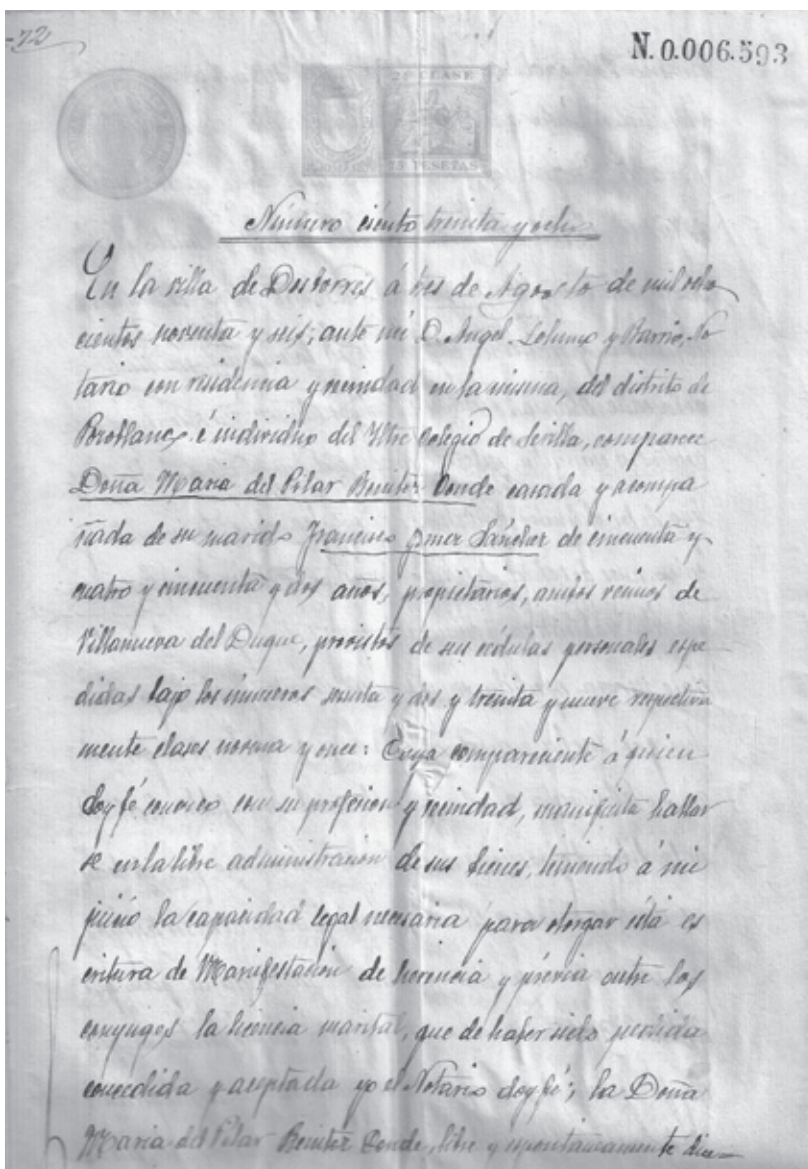 -72
N.0.006.593
2ª CLASE
75 PESETAS
Número ciento treinta y ocho
En la villa de Dostorres á tres de Agosto de mil ocho
cientos noventa y seis; ante mi D. Angel y Barrio, No
tario con residencia y vecindad en la misma, del distrito de
Pozoblanco é individuo del Iltre Colegio de Sevilla, comparece
Doña Maria del Pilar Benitez Conde casada y acompa
ñada de su marido Francisco Sánchez de cincuenta y
cuatro y cincuenta y dos años, propietarios, ambos vecinos de
Villanueva del Duque, provistos de sus cédulas personales espe
didas bajo los números y dos y treinta y nueve respectiva
mente clases novena y once: Cuya compareciente á quien
doy fé conozco con su profesion y vecindad, manifiesta hallar
se en la libre administración de sus bienes, teniendo á mi
juicio la capacidad legal necesaria para otorgar esta es
critura de Manifestación de herencia y prévia entre los
conyuges la licencia marital, que de haber sido pedida
concedida y aceptada yo el Notario doy fé; la Doña
Maria del Pilar Benitez Conde, libre y espontaneamente dice